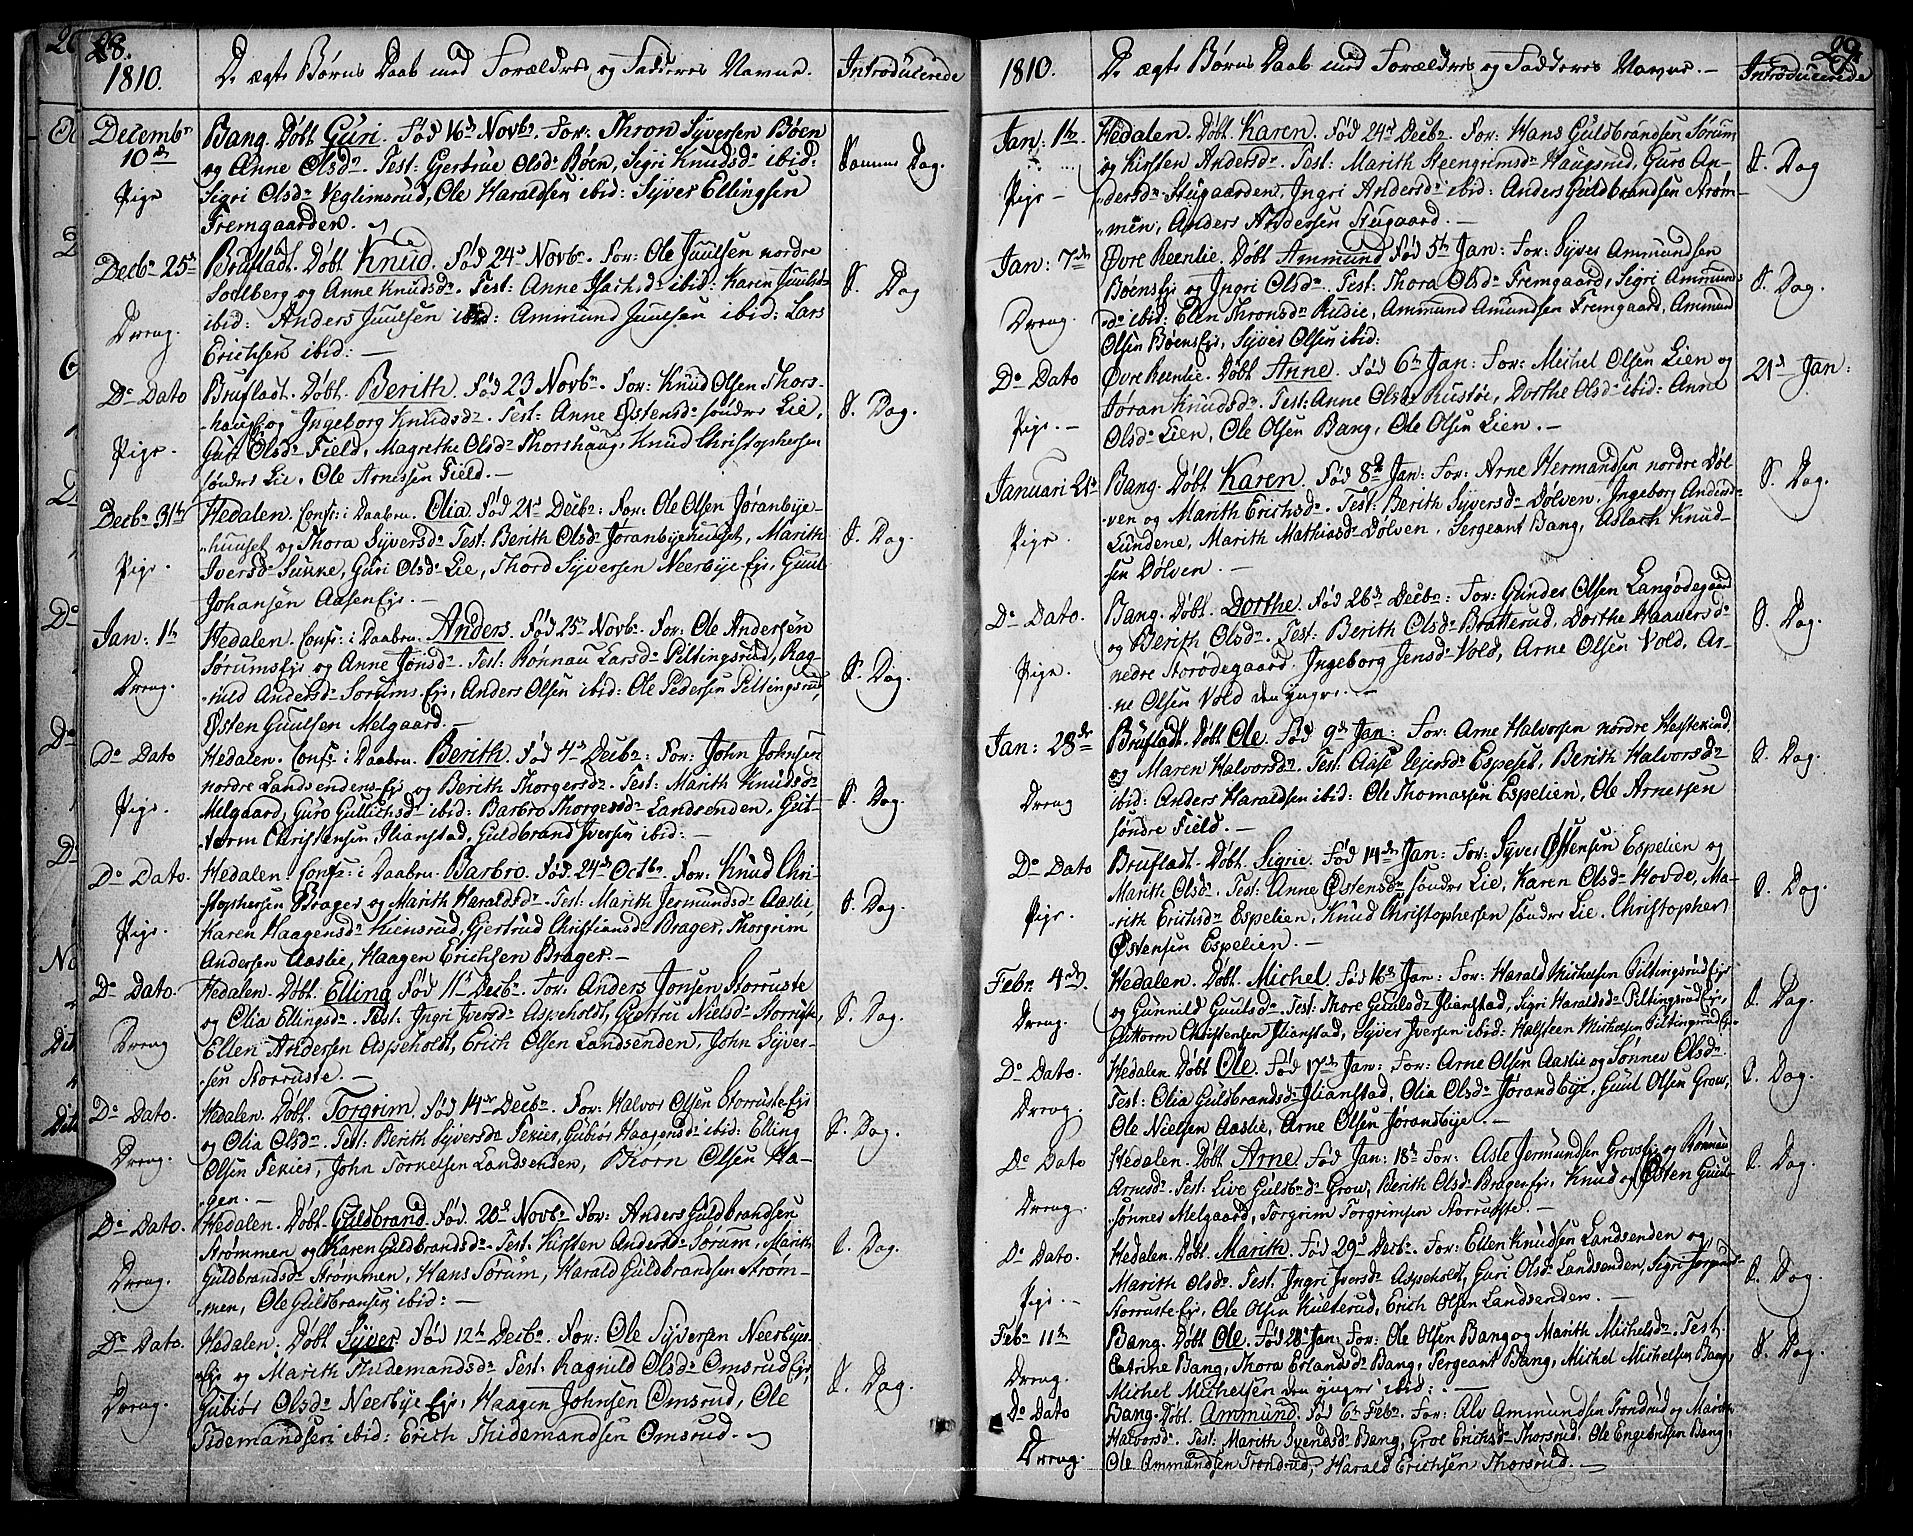 28.
1810.
De ægte Børns Daab med Forældres og Fadderes Navne.
Introducerede
Decembr
10de
Pige
Bang. Døbt Guri. Fød 16de Novbr. For: Thron Syversen Bøen
og Anne Olsdr. Test: Gjertrue Olsdr Bøen, Sigri Knudsdr ibid:
Sigri Olsdr Veglimsrud, Ole Haraldsen ibid: Syver Ellingsen
Fremgaarden.
Samme Dag.
Decbr 25de
Dreng.
Brufladt. Døbt Knud. Fød 24de Novbr. For: Ole Juulsen nordre
Soelberg og Anne Knudsdr. Test: Anne Isachsdr ibid: Karen Juulsdr
ibid: Anders Juulsen ibid: Ammund Juulsen ibid: Lars
Erichsen ibid: —
S. Dag
Do Dato
Pige.
Brufladt. Døbt. Berith. Fød 23 Novbr. For: Knud Olsen Thors-
haug og Ingeborg Knudsdr. Test: Anne Østensdr søndre Lie,
Guri Olsdr Field, Magrethe Olsdr Thorshaug, Knud Christophersen
søndre Lie, Ole Arnessen Field. —
S. Dag.
Decbr 31te
Pige.
Hedalen. Conf: i Daaben. Olia. Fød 21de Decbr: For: Ole Olsen Jøranbye-
huuset og Thora Syversdr Test: Berith Olsdr Jøranbyehuuset, Marith
Iversdr Sukke, Guri Olsdr Lie, Thord Syversen Neerbye Eje, Guul
Johansen Aasen Eje. —
S. Dag.
Jan: 1te
Dreng.
Hedalen. Conf: i Daaben. Anders. Fød 25de Novbr. For: Ole Andersen
Sørums Eje og Anne Jonsdr. Test: Rønnau Larsdr Piltingsrud, Rag-
nild Andersdr Sørums Eje, Anders Olsen ibid: Ole Pedersen Piltingsrud,
Østen Guulsen Melgaard. —
S. Dag.
Do Dato
Pige.
Hedalen. Conf: i Daaben. Berith. Fød 4de Decbr: For: John Johnsen
nordre Landsendens Eje og Berith Thorgersdr. Test: Marith Knudsdr
Melgaard, Guro Gullichsdr ibid: Barbro Thorgersdr Landsenden, Gut-
torm Christensen Ilianstad, Guldbrand Iversen ibid: —
S. Dag.
Do Dato.
Pige.
Hedalen Conf: i Daaben. Barbro. Fød. 24de Octbr. For: Knud Chri-
stophersen Brager og Marith Haraldsdr. Test: Marith Jermundsdr Aaslie,
Karen Haagensdr Kiensrud, Gjertrud Christiansdr Brager, Thorgrim
Andersen Aaslie, Haagen Erichsen Brager. —
S. Dag.
Do Dato.
Dreng
Hedalen. Døbt. Elling Fød 11te Decbr: For: Anders Jonsen Storruste
og Olia Ellingsdr. Test: Ingri Iversdr Aspeholdt, Gjertru Nielsdr Storruste,
Ellen Andersen Aspeholdt, Erich Olsen Landsenden, John Syver-
sen Storruste. —
S. Dag.
Do Dato.
Dreng.
Hedalen. Døbt. Torgrim. Fød 14de Decbr. For: Halvor Olsen Storruste Eje
og Olia Olsdr. Test: Berith Syversdr Fekies, Gubiør Haagensdr ibid: Elling
Olsen Fekies, John Torkelsen Landsenden, Biorn Olsen Ha-
gen. —
S. Dag.
Do Dato.
Dreng.
Hedalen. Døbt. Guldbrand Fød. 20de Novbr For: Anders Guldbrandsen
Strømmen og Karen Guldbrandsdr. Test: Kirsten Andersdr Sørum, Marith
Guldbrandsdr Strømmen, Hans Sørum, Harald Guldbrandsen Strøm-
men, Ole Guldbransen ibid: —
S. Dag.
Do Dato.
Dreng.
Hedalen. Døbt Syver Fød 12te Decbr. For: Ole Syversen Neerbye
Eje og Marith Thidemandsdr. Test: Ragnild Olsdr Omsrud Eje,
Gubiør Olsdr Neerbye Eje, Haagen Johnsen Omsrud, Ole
Tidemandsen ibid: Erich Thidemandsen Omsrud.
S. Dag.
29.
1810.
De ægte Børns Daab med Forældres og Fadderes Navne. —
Introducerede
Jan: 1te
Pige —
Hedalen. Døbt. Karen. Fød 24de Decbr. For: Hans Guldbrandsen Sørum
og Kirsten Andersdr. Test: Marith Steengrimsdr Haugsrud, Guro An-
dersdr Stuegaarden, Ingri Andersdr ibid: Anders Guldbrandsen Strøm-
men, Anders Andersen Stuegaard. —
S. Dag
Jan: 7de
Dreng.
Øvre Reenlie. Døbt Ammund Fød 5te Jan: For: Syver Ammundsen
Bøens Eje og Ingri Olsdr. Test: Thora Olsdr Fremgaard, Sigri Ammunds-
dr ibid: Elen Thronsdr Rudie, Ammund Amundsen Fremgaard, Ammund
Olsen Bøens Eje, Syver Olsen ibid:
S. Dag.
Do Dato
Pige. —
Øvre Reenlie. Døbt Anne. Fød 6te Jan: For: Michel Olsen Lien og
Jøran Knudsdr. Test: Anne Olsdr Rustøe, Dorthe Olsdr ibid: Anne
Olsdr Lien, Ole Olsen Bang, Ole Olsen Lien. —
21de Jan:
Januari 21de
Pige.
Bang. Døbt Karen. Fød 8de Jan: For: Arne Hermandsen nordre Døl-
ven og Marith Erichsdr. Test: Berith Syversdr Dølven, Ingeborg Andersdr
Lundene, Marith Mathiasdr Dølven, Sergeant Bang, Aslach Knud-
sen Dølven. —
S. Dag.
Do Dato.
Pige.
Bang. Døbt. Dorthe. Fød 26de Decbr: For: Gunder Olsen Langødegaard
og Berith Olsdr. Test: Berith Olsdr Bratterud, Dorthe Haaversdr
nedre Storødegaard, Ingeborg Jensdr Vold, Arne Olsen Vold, Ar-
ne Olsen Vold den yngre. —
S. Dag.
Jan: 28de
Dreng
Brufladt. Døbt Ole. Fød 9de Jan: For: Arne Halvorsen nordre Hestekind
og Maren Halvorsdr. Test: Aase Ejersdr Espeset, Berith Halvorsdr
ibid: Anders Haraldsen ibid: Ole Thomassen Espelien, Ole Arnessen
søndre Field. —
S. Dag.
Do Dato
Pige.
Brufladt. Døbt. Sigrie. Fød 14de Jan: For: Syver Østensen Espelien og
Marith Olsdr. Test: Anne Østensdr søndre Lie, Karen Olsdr Hovde, Ma-
rith Erichsdr Espelien, Knud Christophersen søndre Lie. Christopher
Østensen Espelien. —
S. Dag.
Febr. 4de
Dreng.
Hedalen. Døbt. Michel. Fød 16de Jan: For: Harald Michelsen Piltingsrud Eje
og Gunnild Guulsdr. Test: Thore Guulsdr Ilianstad, Sigri Haraldsdr Piltingsrud Eje,
Guttorm Christensen Ilianstad, Syver Iversen ibid: Halsteen Michelsen Piltingsrud Eje.
S. Dag.
Do Dato.
Dreng.
Hedalen Døbt Ole. Fød 17de Jan: For: Arne Olsen Aaslie og Sønnev Olsdr.
Test: Olia Guldbrandsdr Ilianstad, Olia Olsdr Jørandbye, Guul Olsen Grov,
Ole Nielsen Aaslie, Arne Olsen Jørandbye. —
S. Dag.
Do Dato
Dreng.
Hedalen. Døbt Arne. Fød Jan: 18de For: Asle Jermundsen Grovs Eje og Rønnau
Arnesdr. Test: Live Guldbrdsdr Grov, Berith Olsdr Brager Eje, Knud og Østen Guul-
sønner Melgaard, Torgrim Torgrimsen Storruste. —
S. Dag.
Do Dato.
Pige. —
Hedalen. Døbt. Marith. Fød 29de Decbr. For: Ellen Knudsen Landsenden og
Marith Olsdr. Test: Ingri Iversdr Aspeholdt, Guri Olsdr Landsenden, Sigri
Storruste Eje, Ole Olsen Kulterud, Erich Olsen Landsenden. —
S. Dag.
Febr 11te
Dreng.
Bang. Døbt Ole. Fød 28de Jan: For: Ole Olsen Bang og Marith Michelsdr. Test.
Catrine Bang, Thora Erlandsdr Bang, Sergeant Bang, Michel Michelsen Bang,
Michel Michelsen den yngre ibid: —
S. Dag.
Do Dato
Dreng.
Bang. Døbt. Ammund. Fød 6te Febr. For: Alv Ammundsen Trondrud og Marith
Halvorsdr. Test: Marith Svendsdr Bang, Groe Erichsdr Thorsrud, Ole Engebritsen Bang,
Ole Ammundsen Trondrud, Harald Erichsen Thorsrud. —